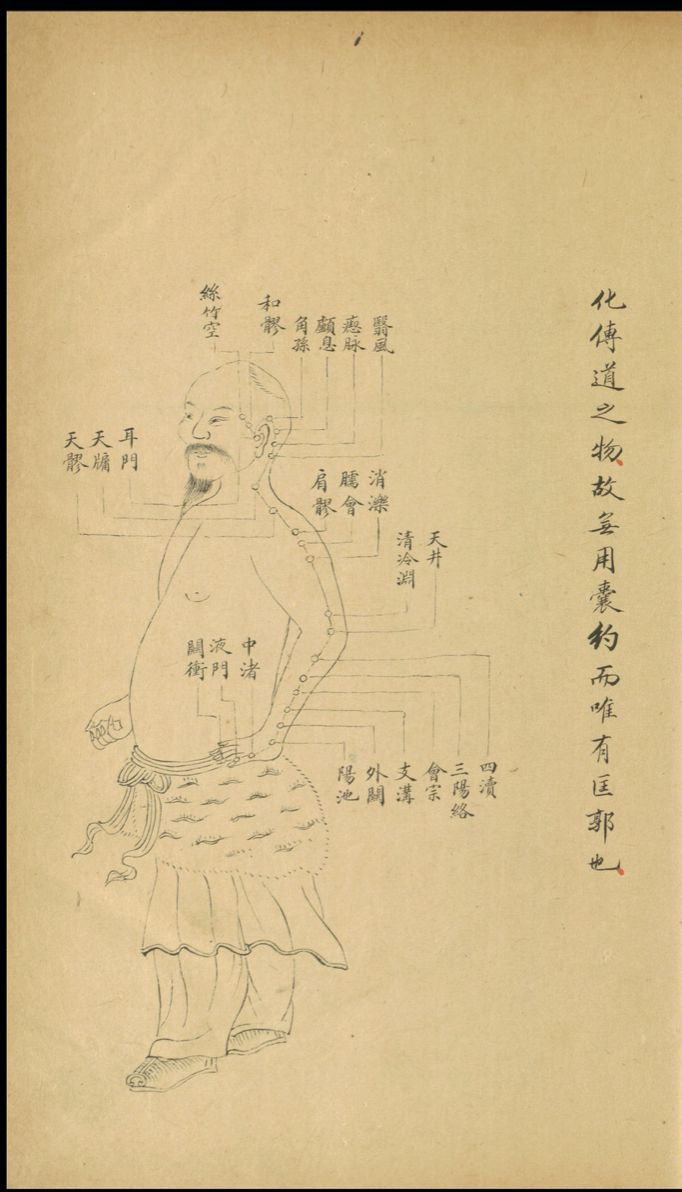 化傳道之物、故無用囊約而唯有匡郭也、
翳風
瘛脉
顱息
角孫
和髎
絲竹空
耳門
天牖
天髎
消濼
臑會
肩髎
天井
清冷淵
中渚
液門
關衝
四瀆
三陽絡
會宗
支溝
外關
陽池